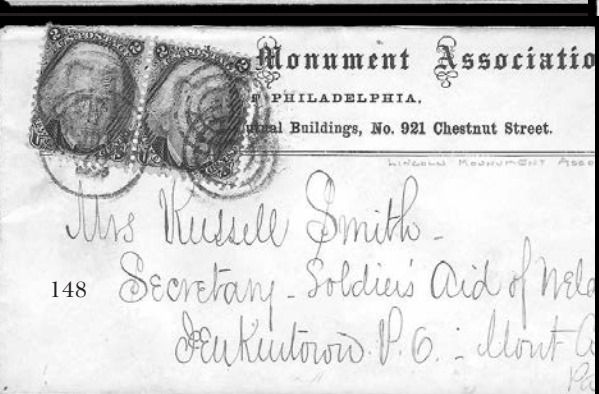 Monument Associatio
F PHILADELPHIA,
Buildings, No. 921 Chestnut Street.
LINCOLN MONUMENT ASSO
Mrs Russell Smith -
148
Secretary - Soldiers Aid of Weld
Jenkintown P. O. - Mont C
Pa